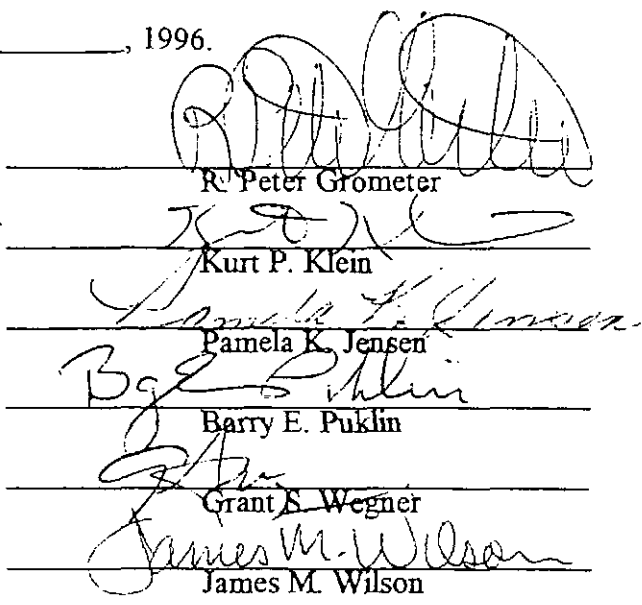 , 1996.
R. Peter Grometer
Kurt P. Klein
Pamela K. Jensen
Pamela K. Jensen
Barry E. Puklin
Grant S. Wegner
James M. Wilson
James M. Wilson